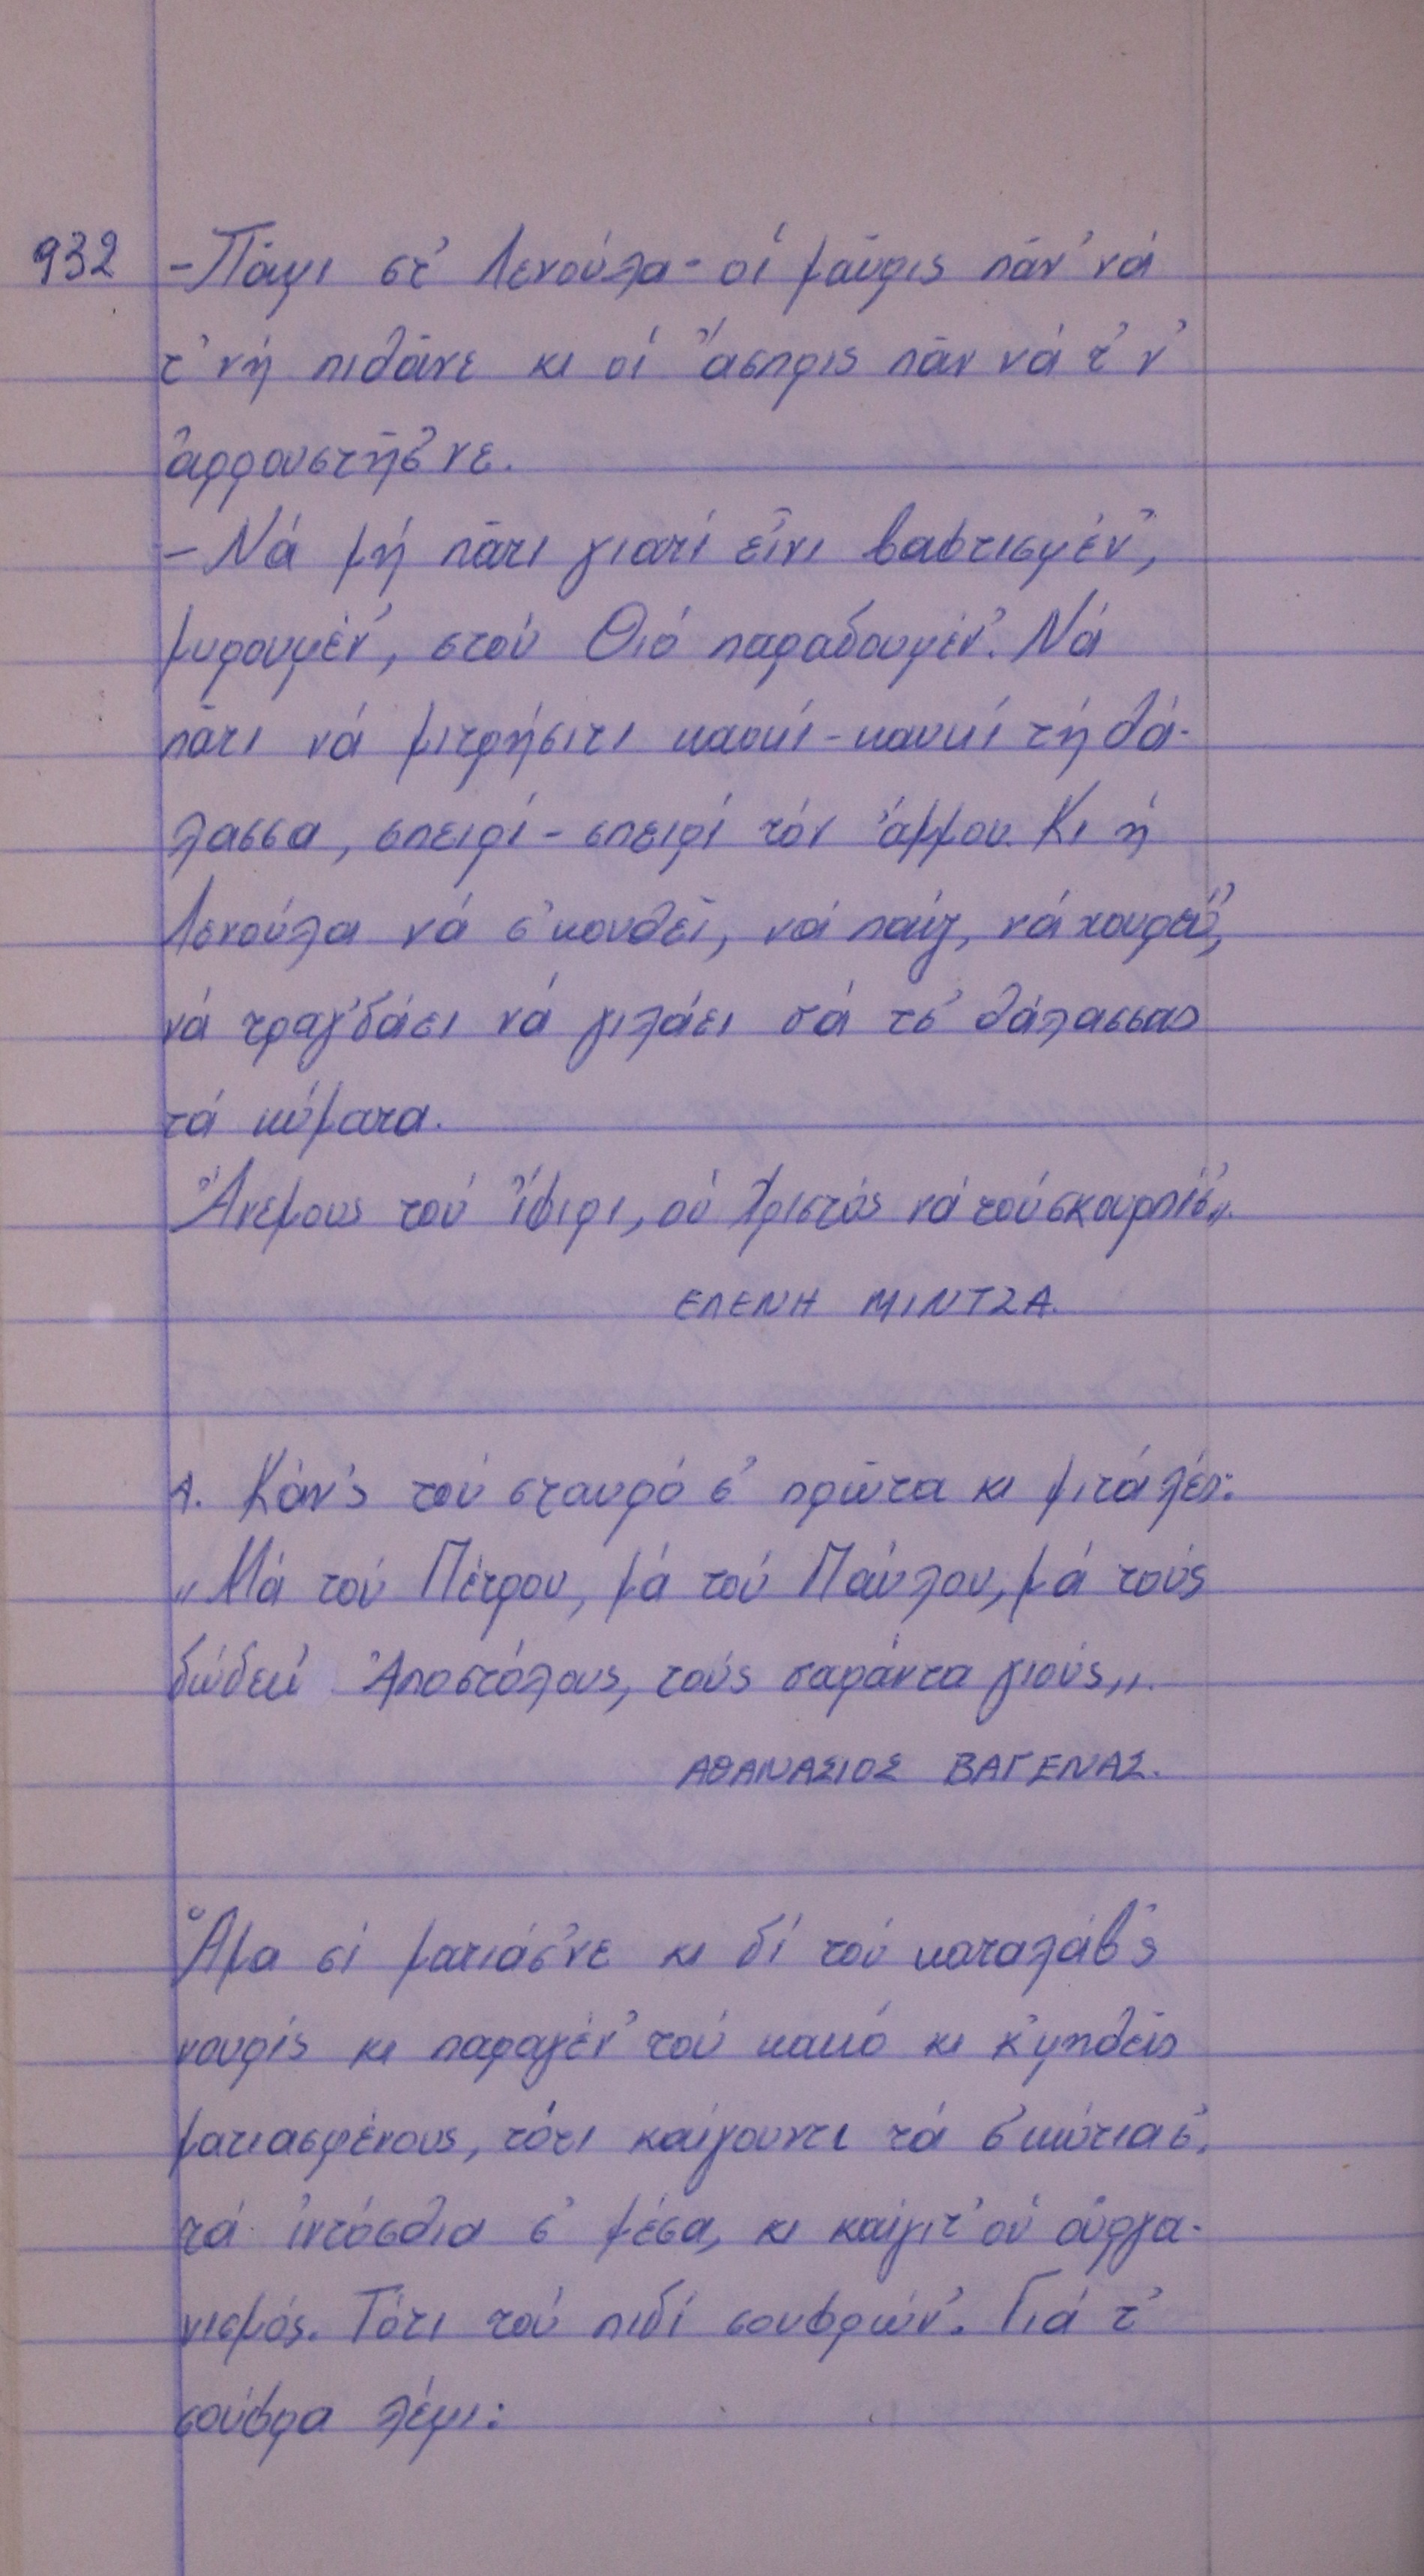 932
-Πᾶμι στ' Λενούλα- οἱ μαῦρις πᾶν' νά
τ' νή πιθᾶνε κι οἱ ἄσπρις πᾶν νά τ' ν'
ἀρρουστήσ'νε.
- Νά μή πᾶτι γιατί εἶνι βαφτισμέν',
μυρουμέν', στού Θιό παραδουμέν'. Νά
πᾶτι νά μιτρήσιτι καυκί-καυκί τή θά-
λασσα, σπειρί-σπειρί τόν ἄμμου. Κι ἡ
Λενούλα νά σ'κουθεῖ, νά παίζ, νά χουρεύ',
νά τραγ'δάει νά γιλάει σά τσ' θάλασσας
τά κύματα.
Ἄνεμους τού ἴφιρι, οὑ Χριστός νά τού σκουρπίσ'".
ΕΛΕΝΗ ΜΙΝΤΖΑ.
Α. Κάν'ς τού σταυρό σ' πρῶτα κι μιτά λές:
"Μά τού Πέτρου, μά τού Παύλου, μά τούς
δώδεκ' Ἀποστόλους, τούς σαράντα γιούς".
ΑΘΑΝΑΣΙΟΣ ΒΑΓΕΝΑΣ.
Ἅμα σί ματιάσ'νε κι δί τού καταλάβ'ς
νουρίς κι παραγέν' τού κακό κι κ'μηθεῖς
ματιασμένους, τότι καίγουντι τά σ'κώτιασ',
τά ἰντόσθια σ' μέσα, κι καίγιτ' οὑ οὑργα-
νισμός. Τότι τού πιδί σουφρών'. Γιά τ'
σούφρα λέμι: